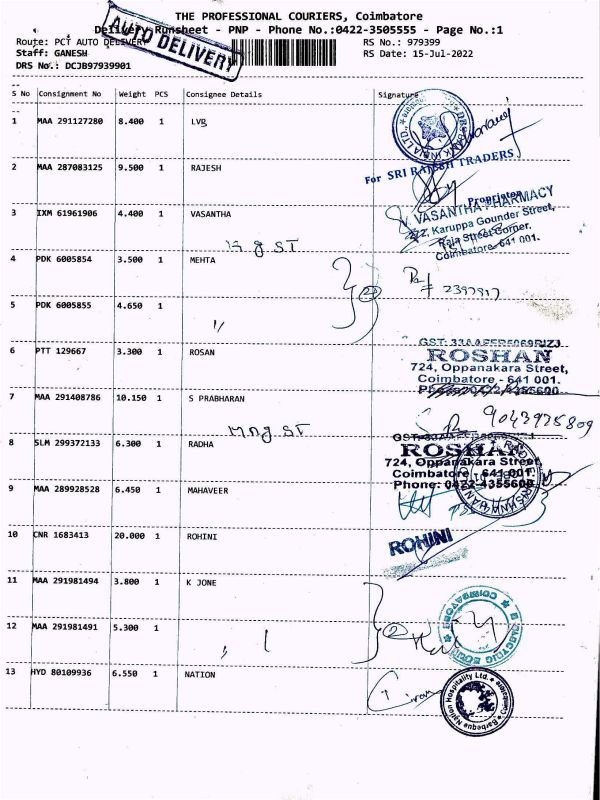 THE PROFESSIONAL COURIERS, Coimbatore
Delivery Runsheet - PNP - Phone No.:0422-3505555 - Page No.:1
Route: PCT AUTO DELIVERY
RS No.: 979399
Staff: GANESH
RS Date: 15-Jul-2022
DRS No.: DCJB97939901
AUTO DELIVERY
S No Consignment No Weight PCS Consignee Details Signature
1 MAA 291127280 8.400 1 LVB
2 MAA 287083125 9.500 1 RAJESH
For SRI RAJESH TRADERS
Proprietor
3 IXM 61961906 4.400 1 VASANTHA
V. VASANTHA PHARMACY
222, Karuppa Gounder Street,
Raja Street Corner,
Coimbatore-641 001.
4 PDK 6005854 3.500 1 MEHTA
2397917
5 PDK 6005855 4.650 1
6 PTT 129667 3.300 1 ROSAN
ROSHAN
724, Oppanakara Street,
Coimbatore - 641 001.
7 MAA 291408786 10.150 1 S PRABHARAN
8 SLM 299372133 6.300 1 RADHA
ROSHAN
724, Oppanakara Street,
Coimbatore - 641 001.
Phone: 0422-4355600
9 MAA 289928528 6.450 1 MAHAVEER
10 CNR 1683413 20.000 1 ROHINI
ROHINI
11 MAA 291981494 3.800 1 K JONE
12 MAA 291981491 5.300 1
13 HYD 80109936 6.550 1 NATION
Barbeque Nation Hospitality Ltd.